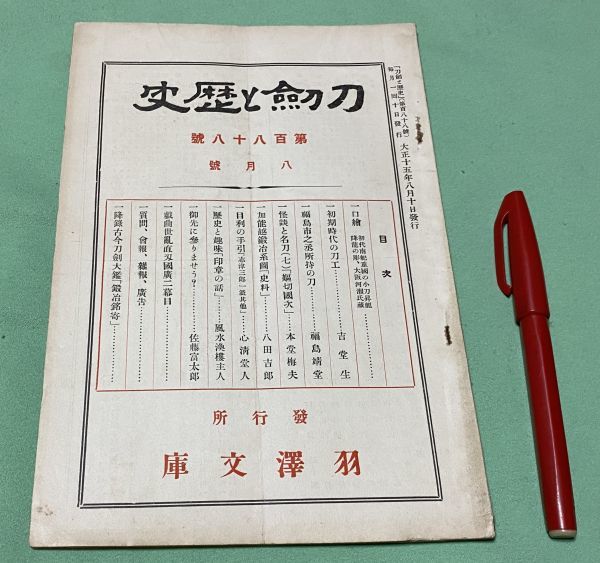 「刀劍と歴史」(第百八十八號)
每月一回十日發行
大正十五年八月十日發行
刀劍と歴史
第百八十八號
八月號
目次
一口繪
初代南紀重國の小刀昇龍
降龍の彫、大阪河瀨氏藏
一初期時代の刀工 吉堂生
一福島市之丞所持の刀 福島靖堂
一怪談と名刀(七)「嫗切國次」 本堂梅夫
一加能越鍛冶系圖「史料」 八田吉郎
一目利の手引「志津三郎一派其他」 心清堂人
一歷史と趣味「印章の話」 風水渙樓主人
一御先に參りませう? 佐藤富太郎
一戲曲世亂直刄國廣二幕目
一質問、會報、雜報、廣告
一降錄古今刀劍大鑑「鍛冶銘寄」
發行所
羽澤文庫